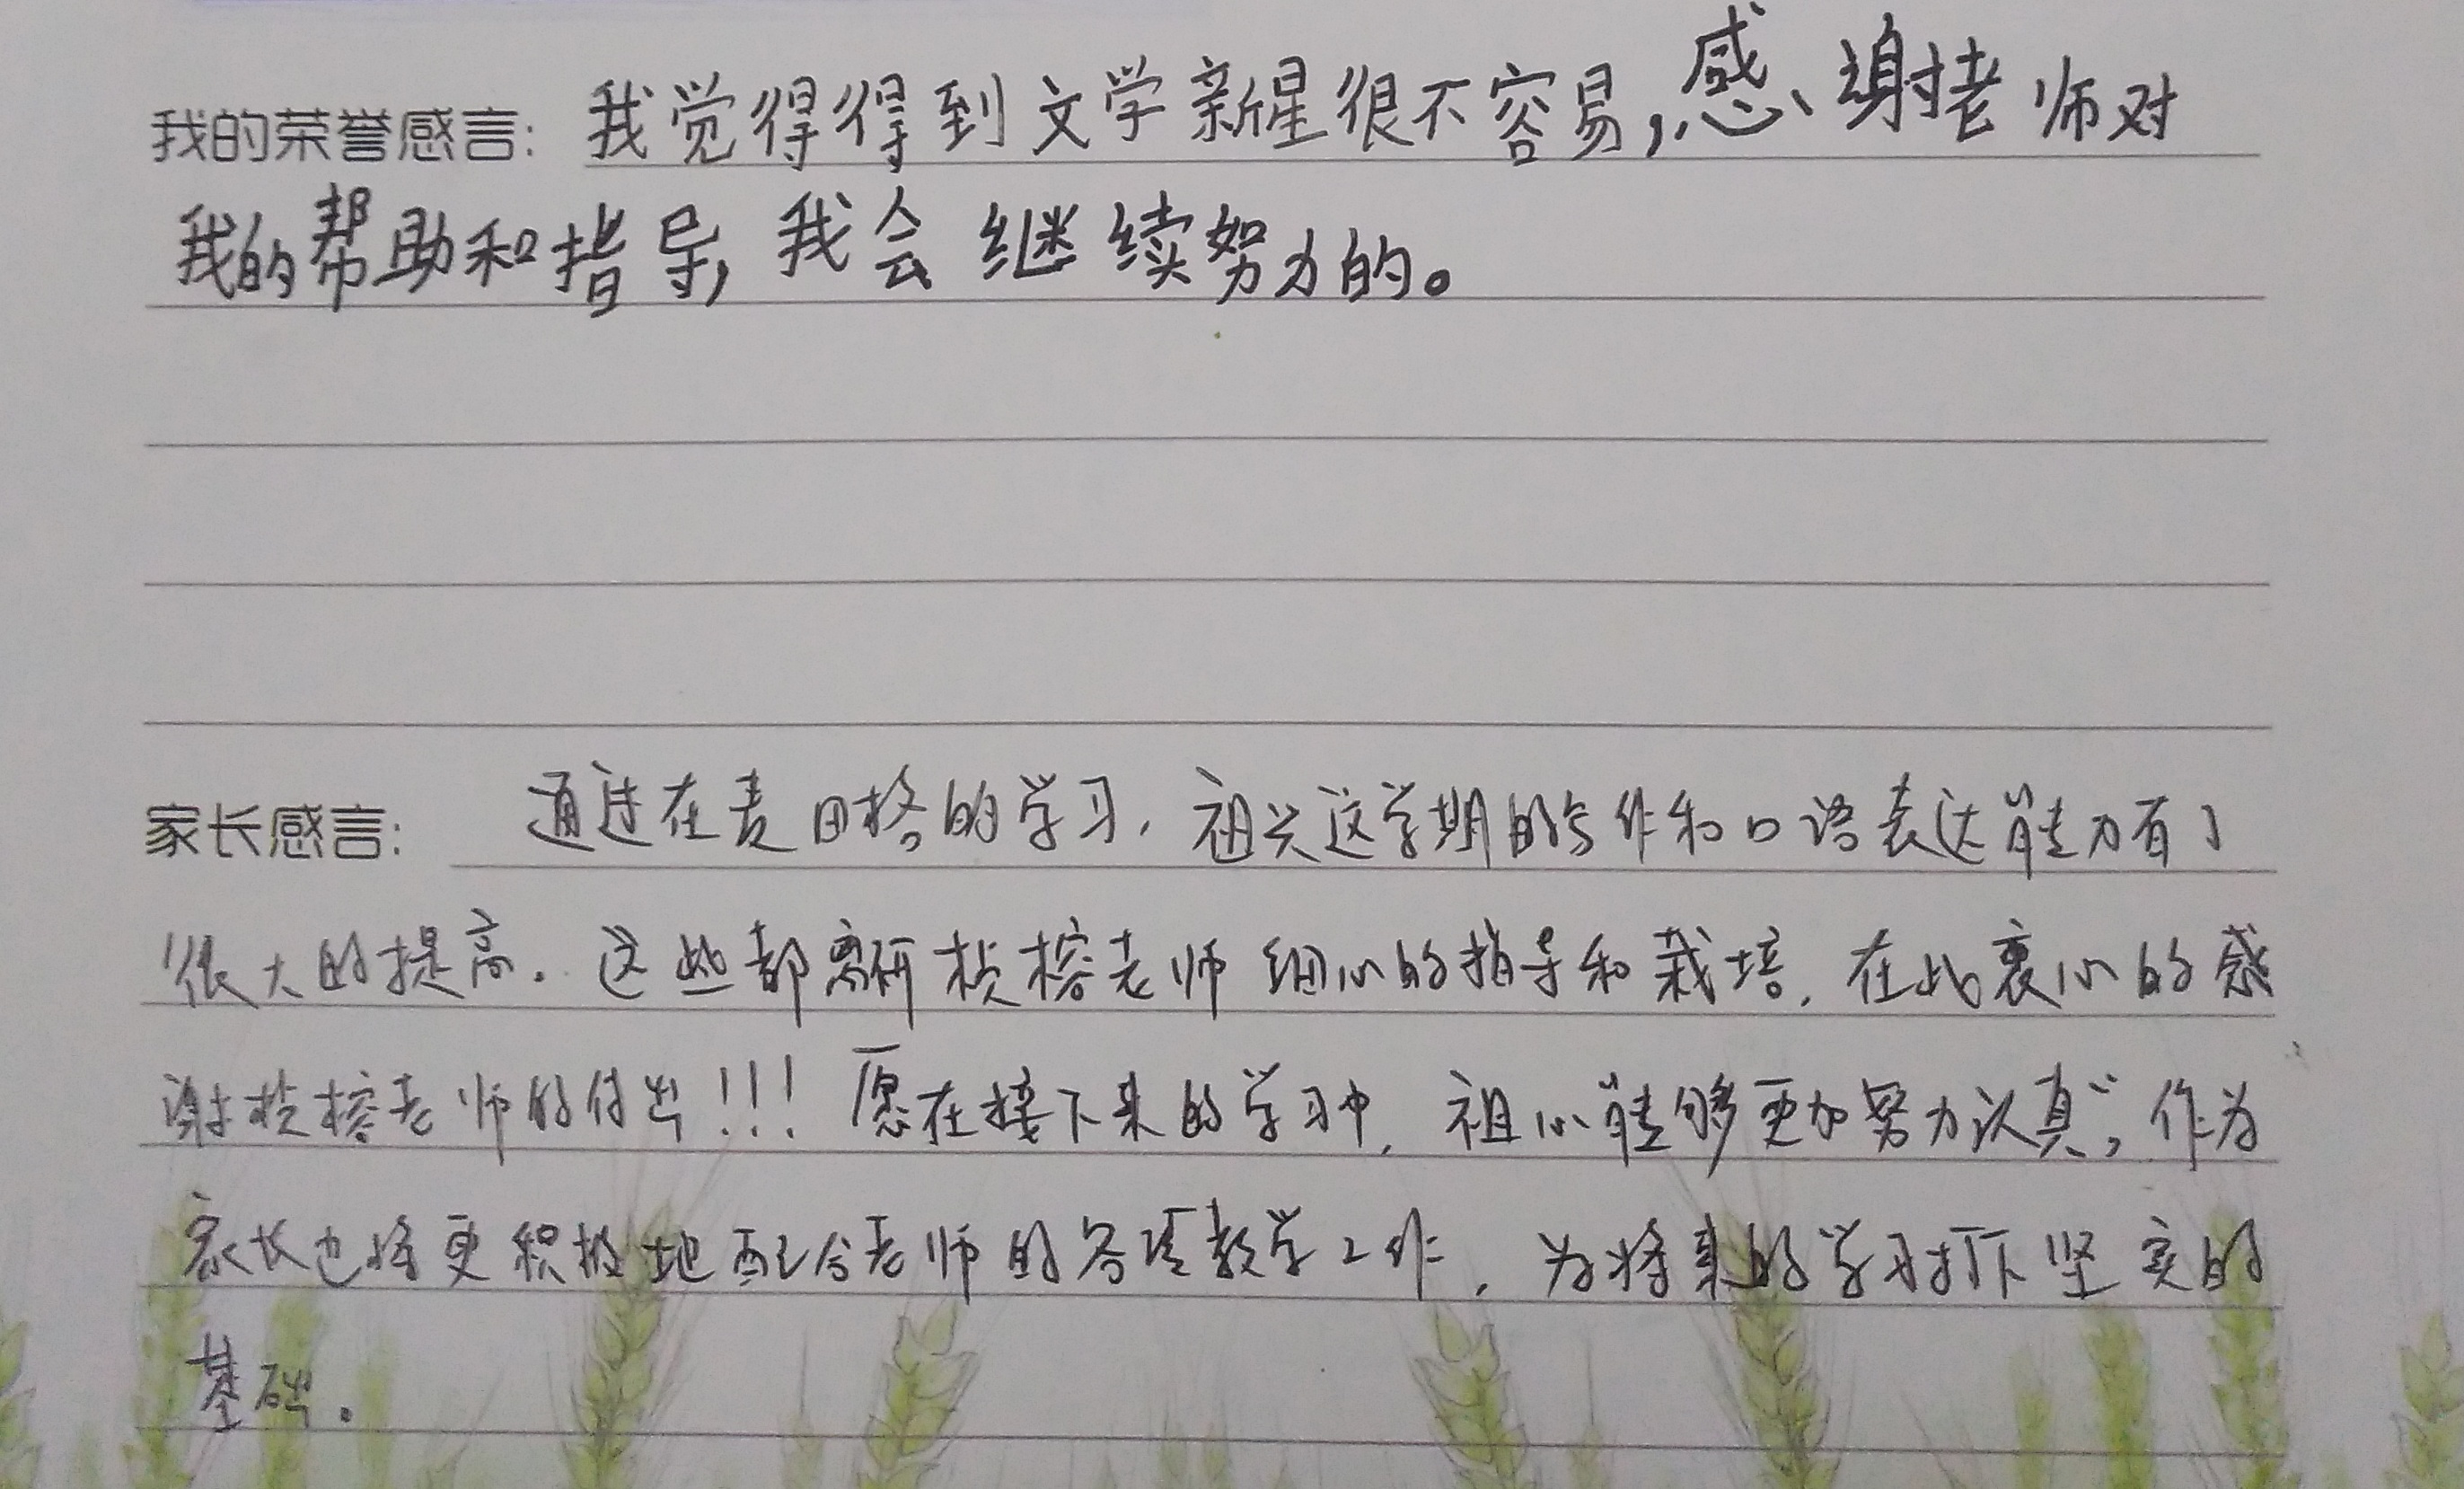 我的荣誉感言: 我觉得得到文学新星很不容易,感谢老师对
我的帮助和指导,我会继续努力的。
家长感言: 通过在麦田格的学习,祖兴这学期的写作和口语表达能力有了
很大的提高。这些都离开槟榕老师细心的指导和栽培,在此衷心的感
谢槟榕老师的付出!!!愿在接下来的学习中,祖兴能够更加努力认真,作为
家长也将更积极地配合老师的各项教学工作,为将来的学习打下坚实的
基础。